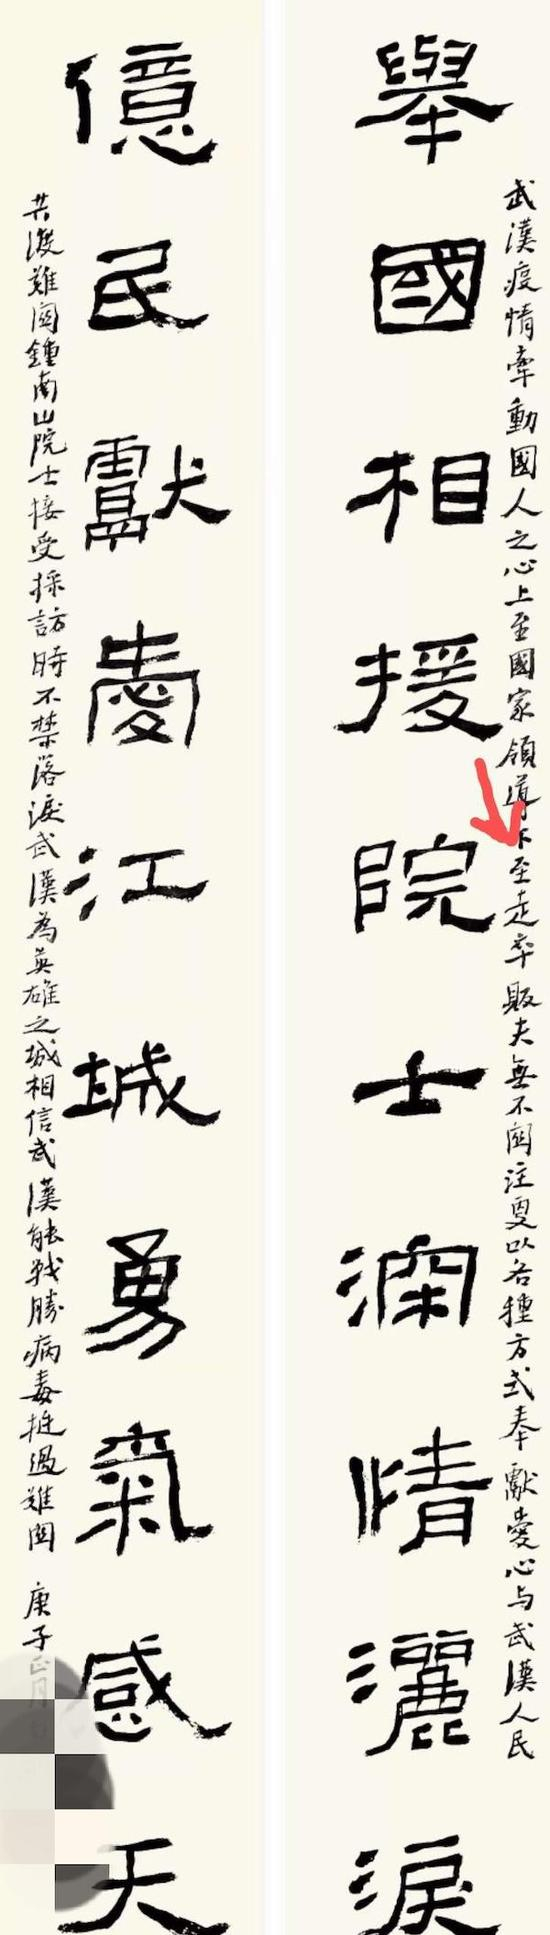 武漢疫情牽動國人之心上至國家領導下至走卒販夫無不関注更以各種方式奉獻愛心与武漢人民
舉國相援院士深情灑淚
億民獻愛江城勇氣感天
共渡難関鍾南山院士接受採訪時不禁落淚武漢為英雄之城相信武漢能戰勝病毒挺過難関 庚子正月